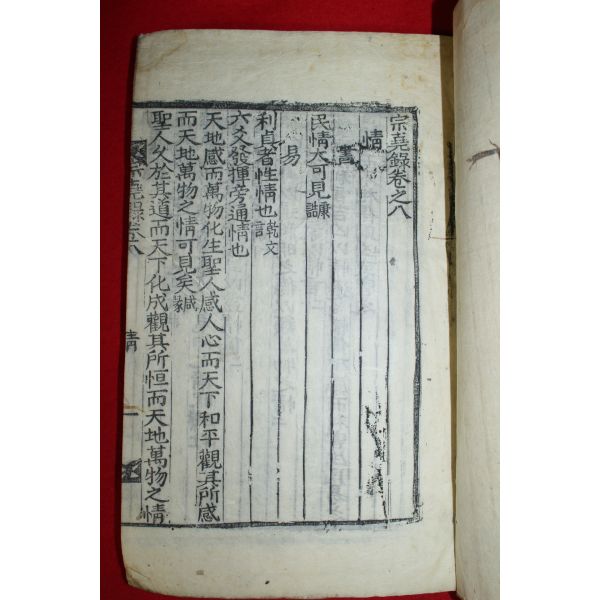 宗堯錄卷之八
情
書
民情大可見康誥
易
利貞者性情也乾文言
六爻發揮旁通情也
天地感而萬物化生聖人感人心而天下和平觀其所感
而天地萬物之情可見矣咸彖
聖人久於其道而天下化成觀其所恒而天地萬物之情
宗堯錄卷八
情
一